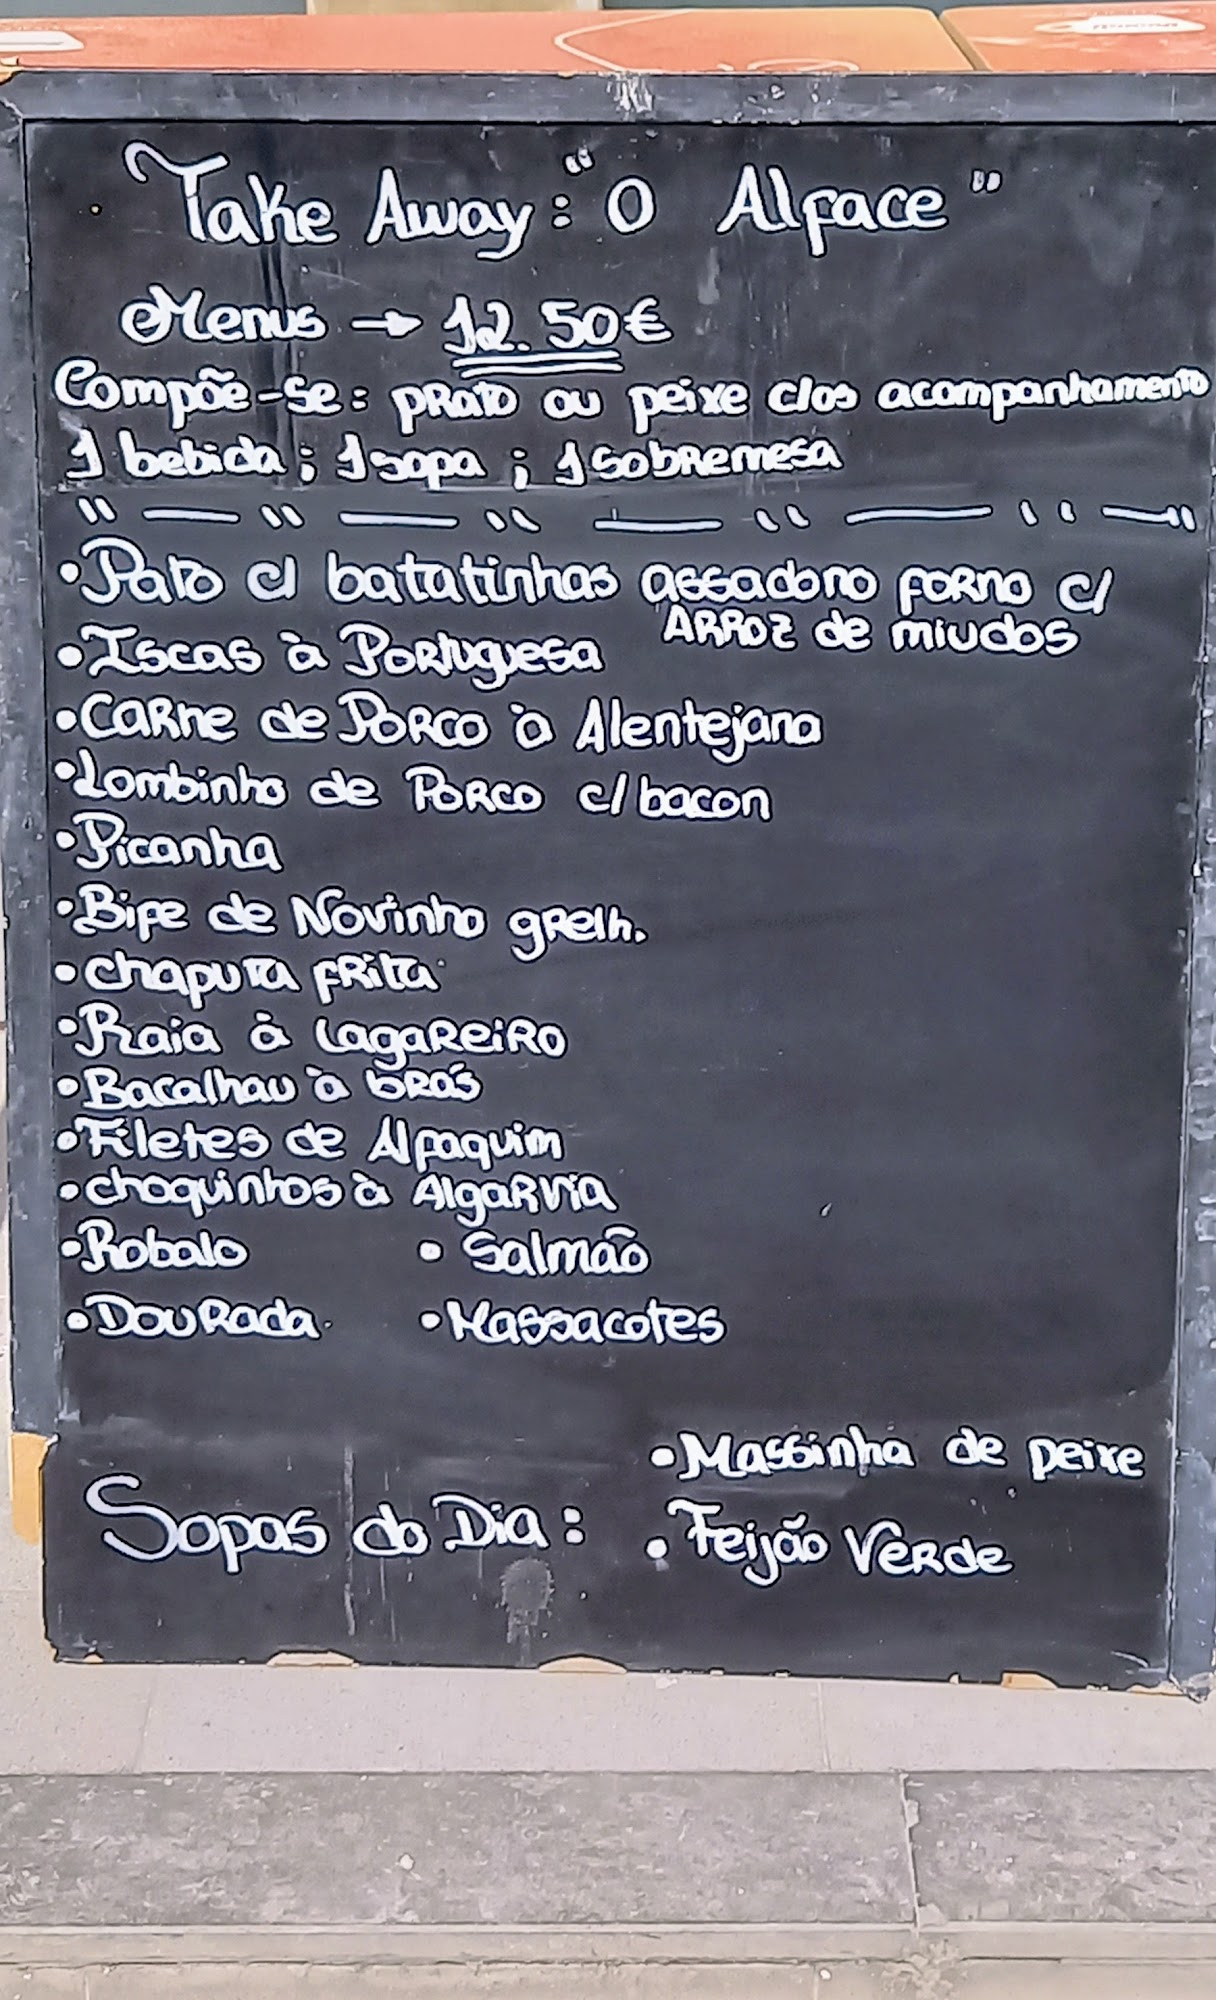 Take Away: "O Alface"
Menus → 12.50€
Compõe-se: prato ou peixe c/os acompanhamento
1 bebida; 1 sopa; 1 sobremesa
• Pato c/ batatinhas assado no forno c/
ARROZ de miudos
• Iscas à Portuguesa
• Carne de Porco à Alentejana
• Lombinho de Porco c/ bacon
• Picanha
• Bife de Novinho grelh.
• chaputa frita
• Raia à Lagareiro
• Bacalhau à brás
• Filetes de Alfaquim
• choquinhos à Algarvia
• Robalo • Salmão
• Dourada • Massacotes
• Massinha de peixe
Sopas do Dia:
• Feijão Verde